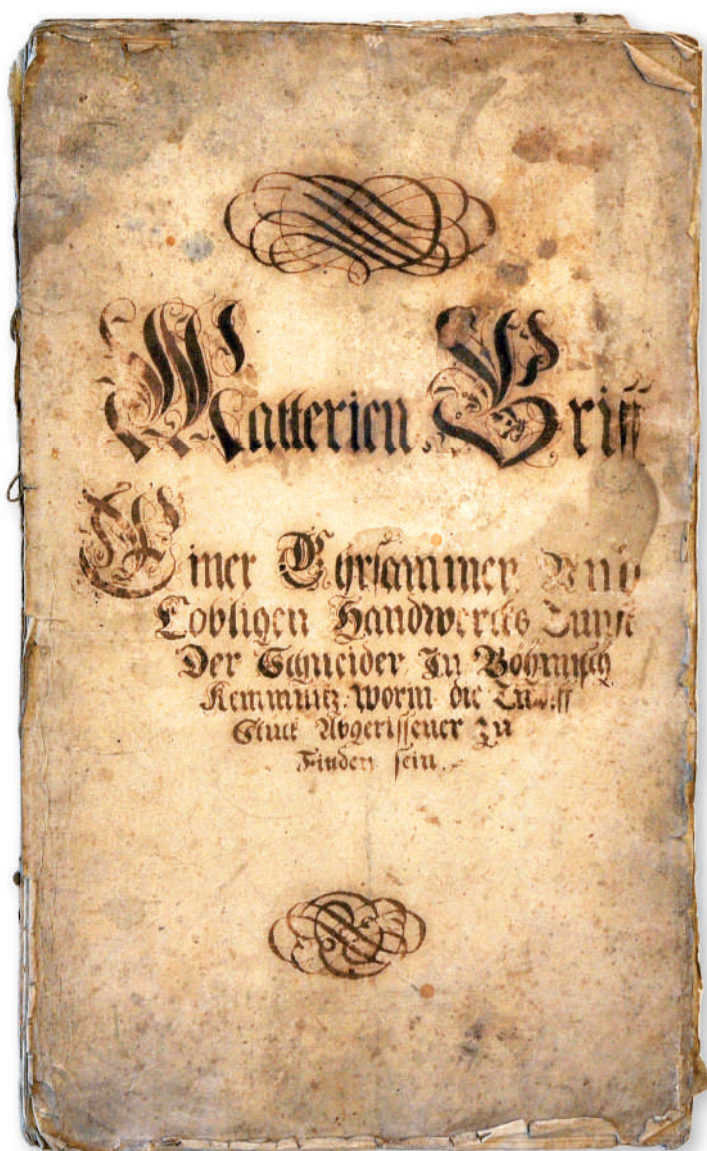 Matterien Briff
Einer Ehrsammen Und
Lobligen Handwercks Zunft
Der Schneider In Böhmisch
Kemmnitz. Worin die
Stuck Abgerissener Zu
Finden sein.